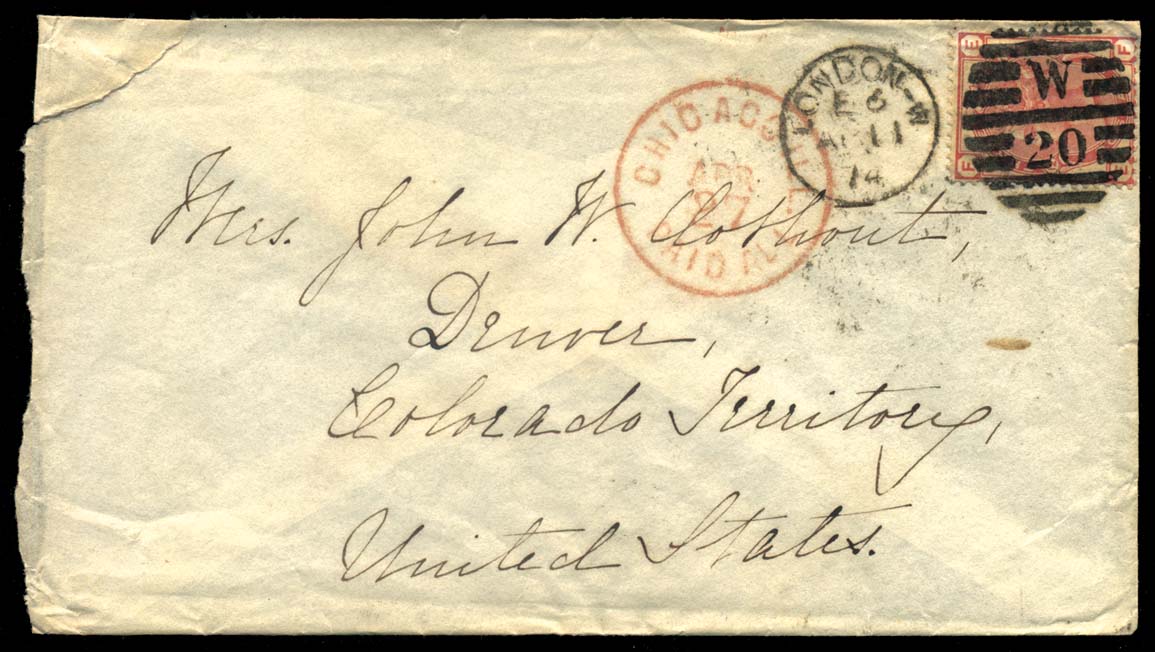 E F
W
20
F E
LONDON-W
E 6
AP 11
74
CHICAGO ILL.
APR
27
PAID ALL
Mrs. John W.
Denver,
Colorado Territory,
United States.